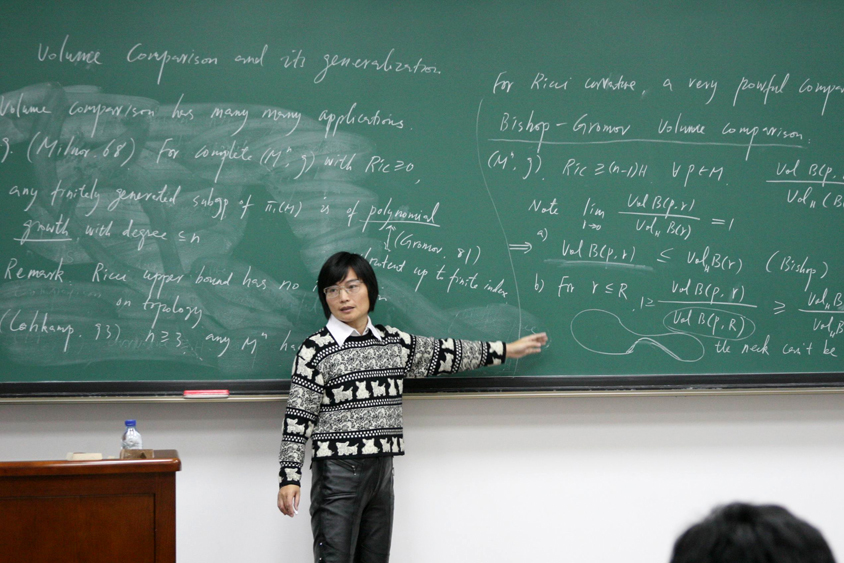 Volume Comparison and its generalization.
Volume comparison has many many applications.
g. (Milnor. 68) For complete (Mⁿ, g) with Ric ≥ 0,
any finitely generated subgp of π₁(M) is of polynomial
growth with degree ≤ n
(Gromov, 81)
up to finite index
Remark. Ricci upper bound has no
on topology
(Lohkamp. 93) n ≥ 3. any Mⁿ
For Ricci curvature, a very powful
Bishop-Gromov Volume comparison.
(Mⁿ, g). Ric ≥ (n-1)H ∀ p ∈ M.
Note lim r→0 Vol B(p,r) / Vol_H B(r) = 1
a) ⇒ Vol B(p,r) ≤ Vol_H B(r) (Bishop)
b) For r ≤ R, 1 ≥ Vol B(p, r) / Vol B(p, R) ≥
the neck can't be